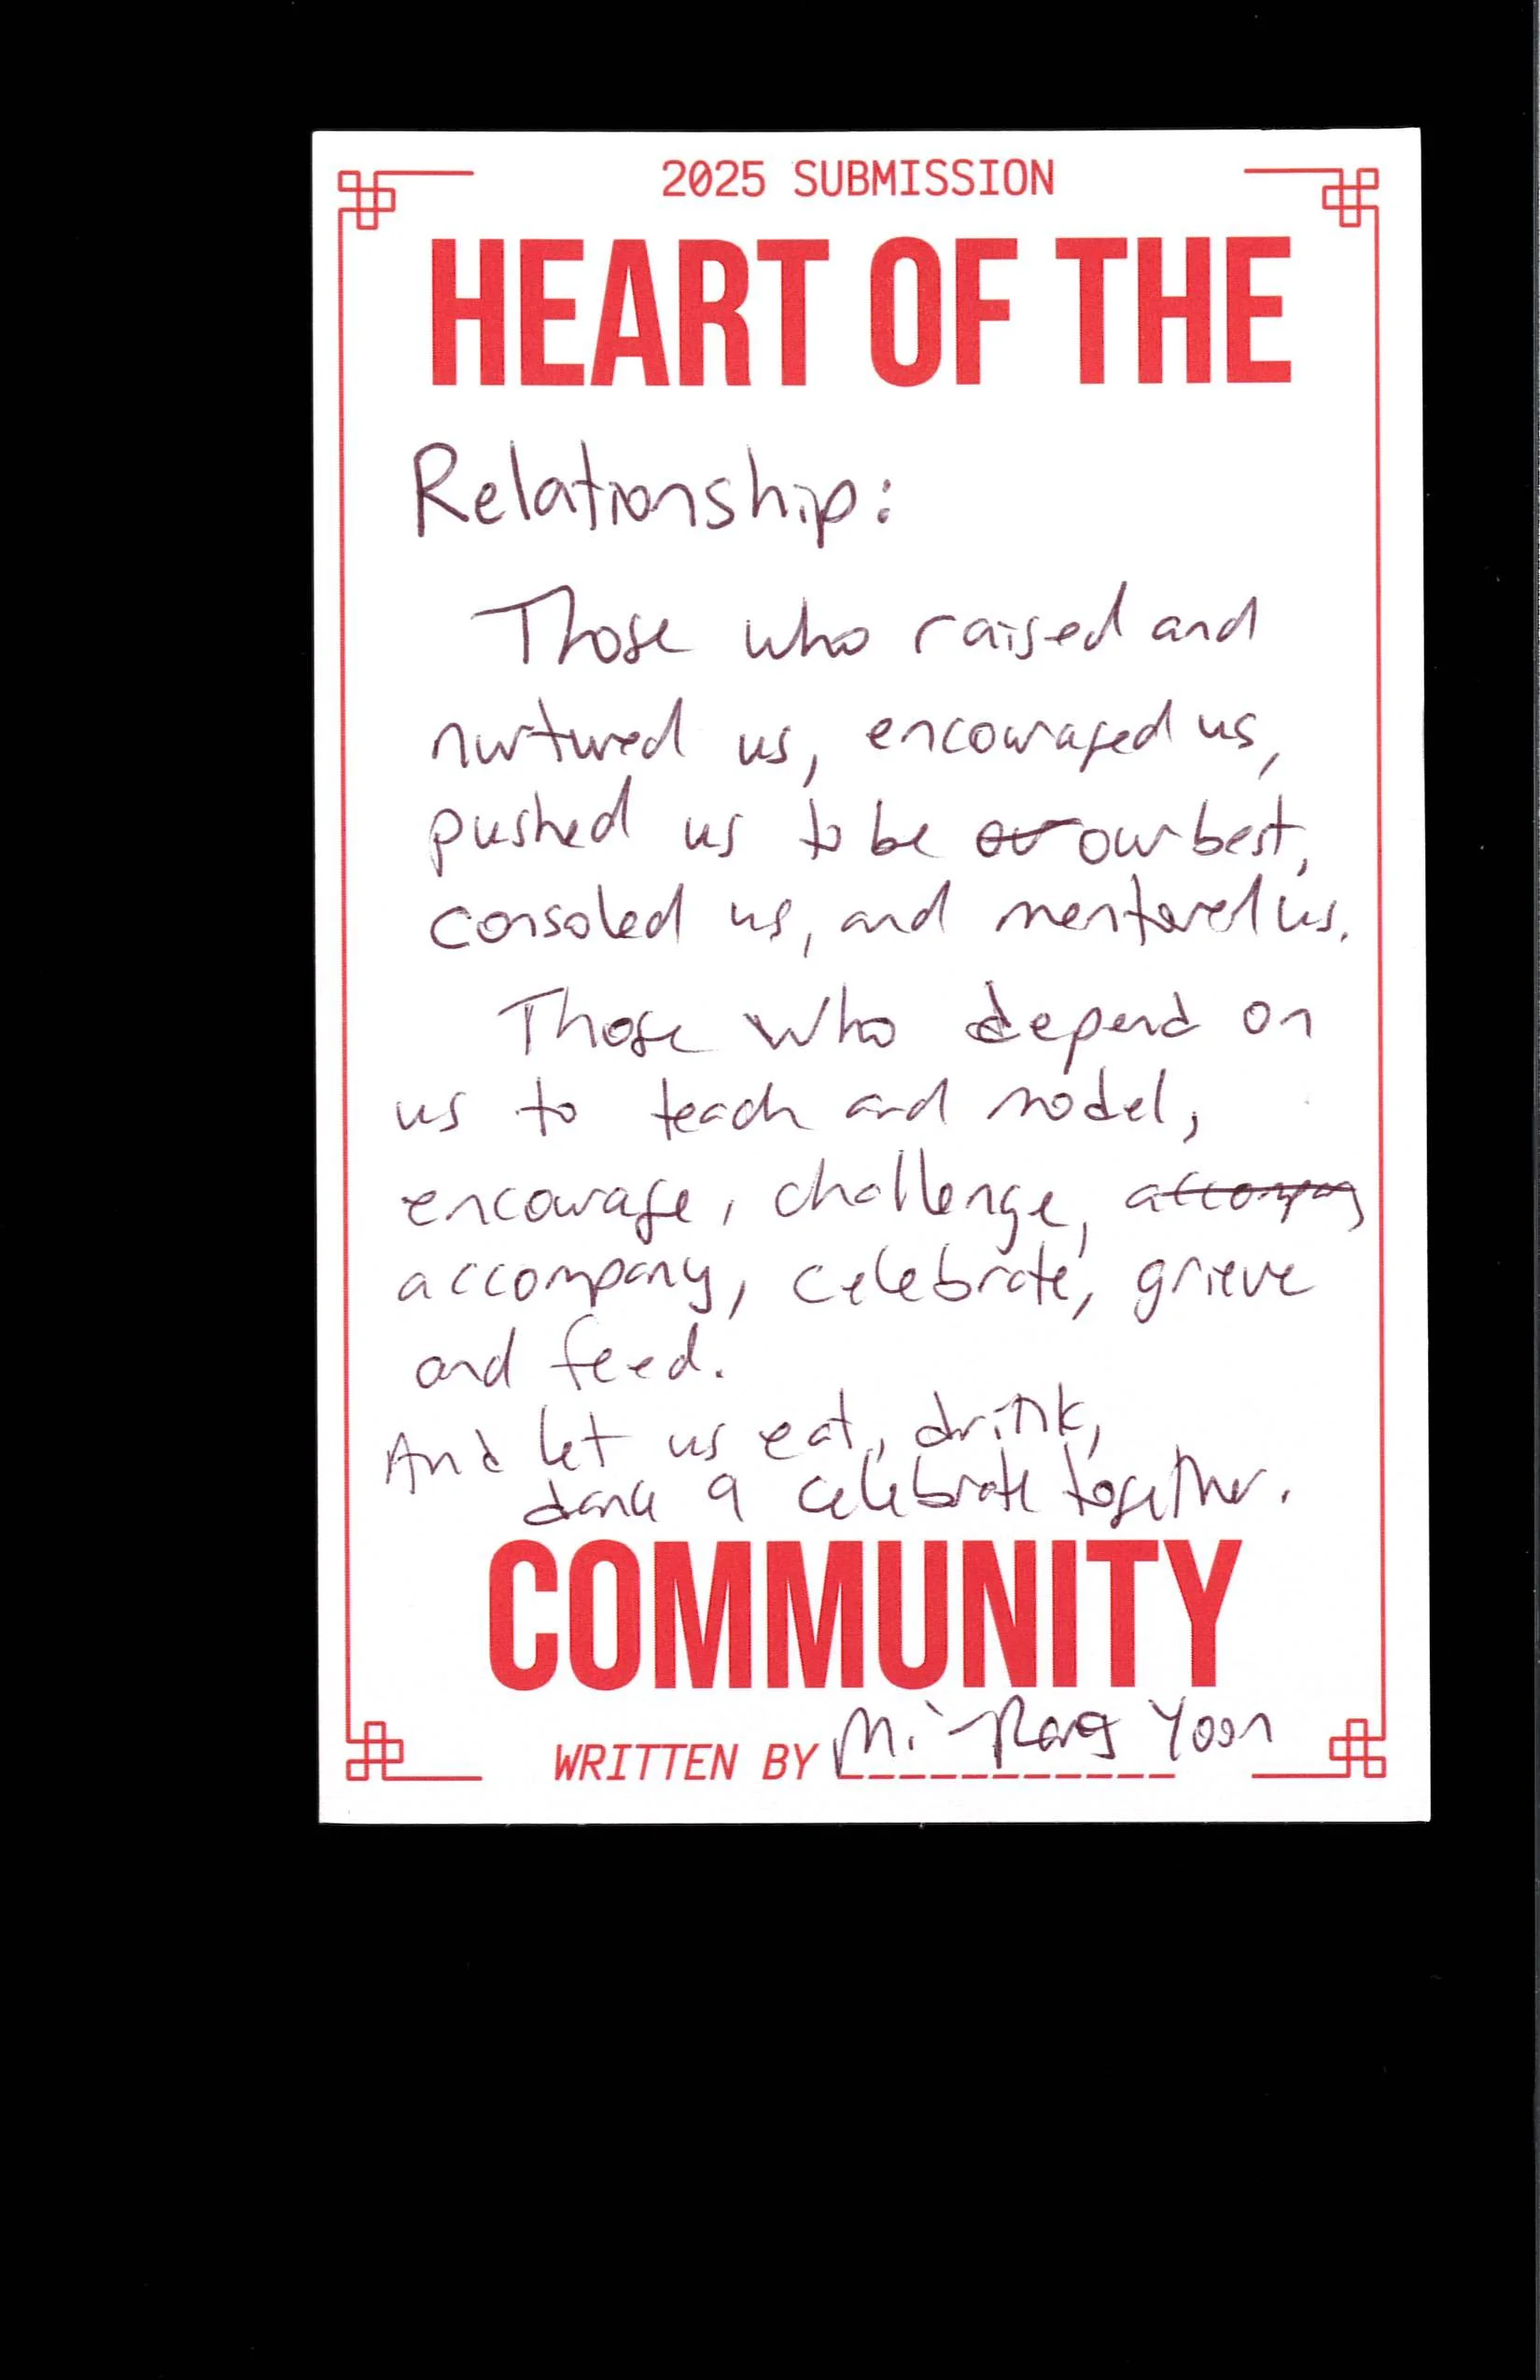 2025 SUBMISSION
HEART OF THE
Relationship:
Those who raised and
nurtured us, encouraged us,
pushed us to be ou our best,
consoled us, and mentored us.
Those who depend on
us to teach and model,
encourage, challenge, accompny
accompany, celebrate, grieve
and feed.
And let us eat, drink,
dance & celebrate together.
COMMUNITY
WRITTEN BY Mi-Rang Yoon